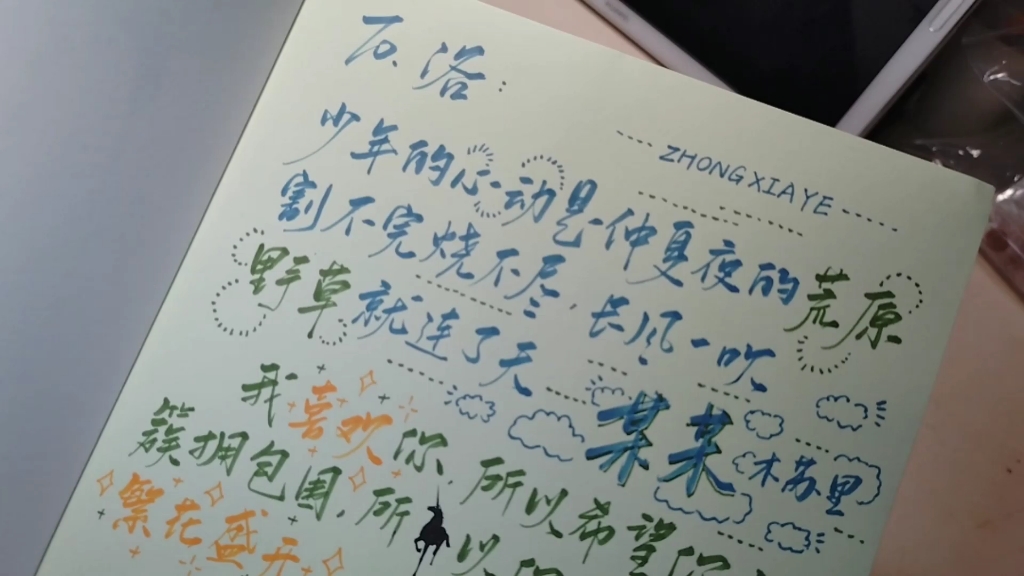 石洛：
ZHONGXIAYE
少年的心动是仲夏夜的荒原
割不完烧不尽，长风一吹
野草就连了天
某某
木苏里
我喜欢你，所以希望你
簇拥包围，所以你
繁花盛开